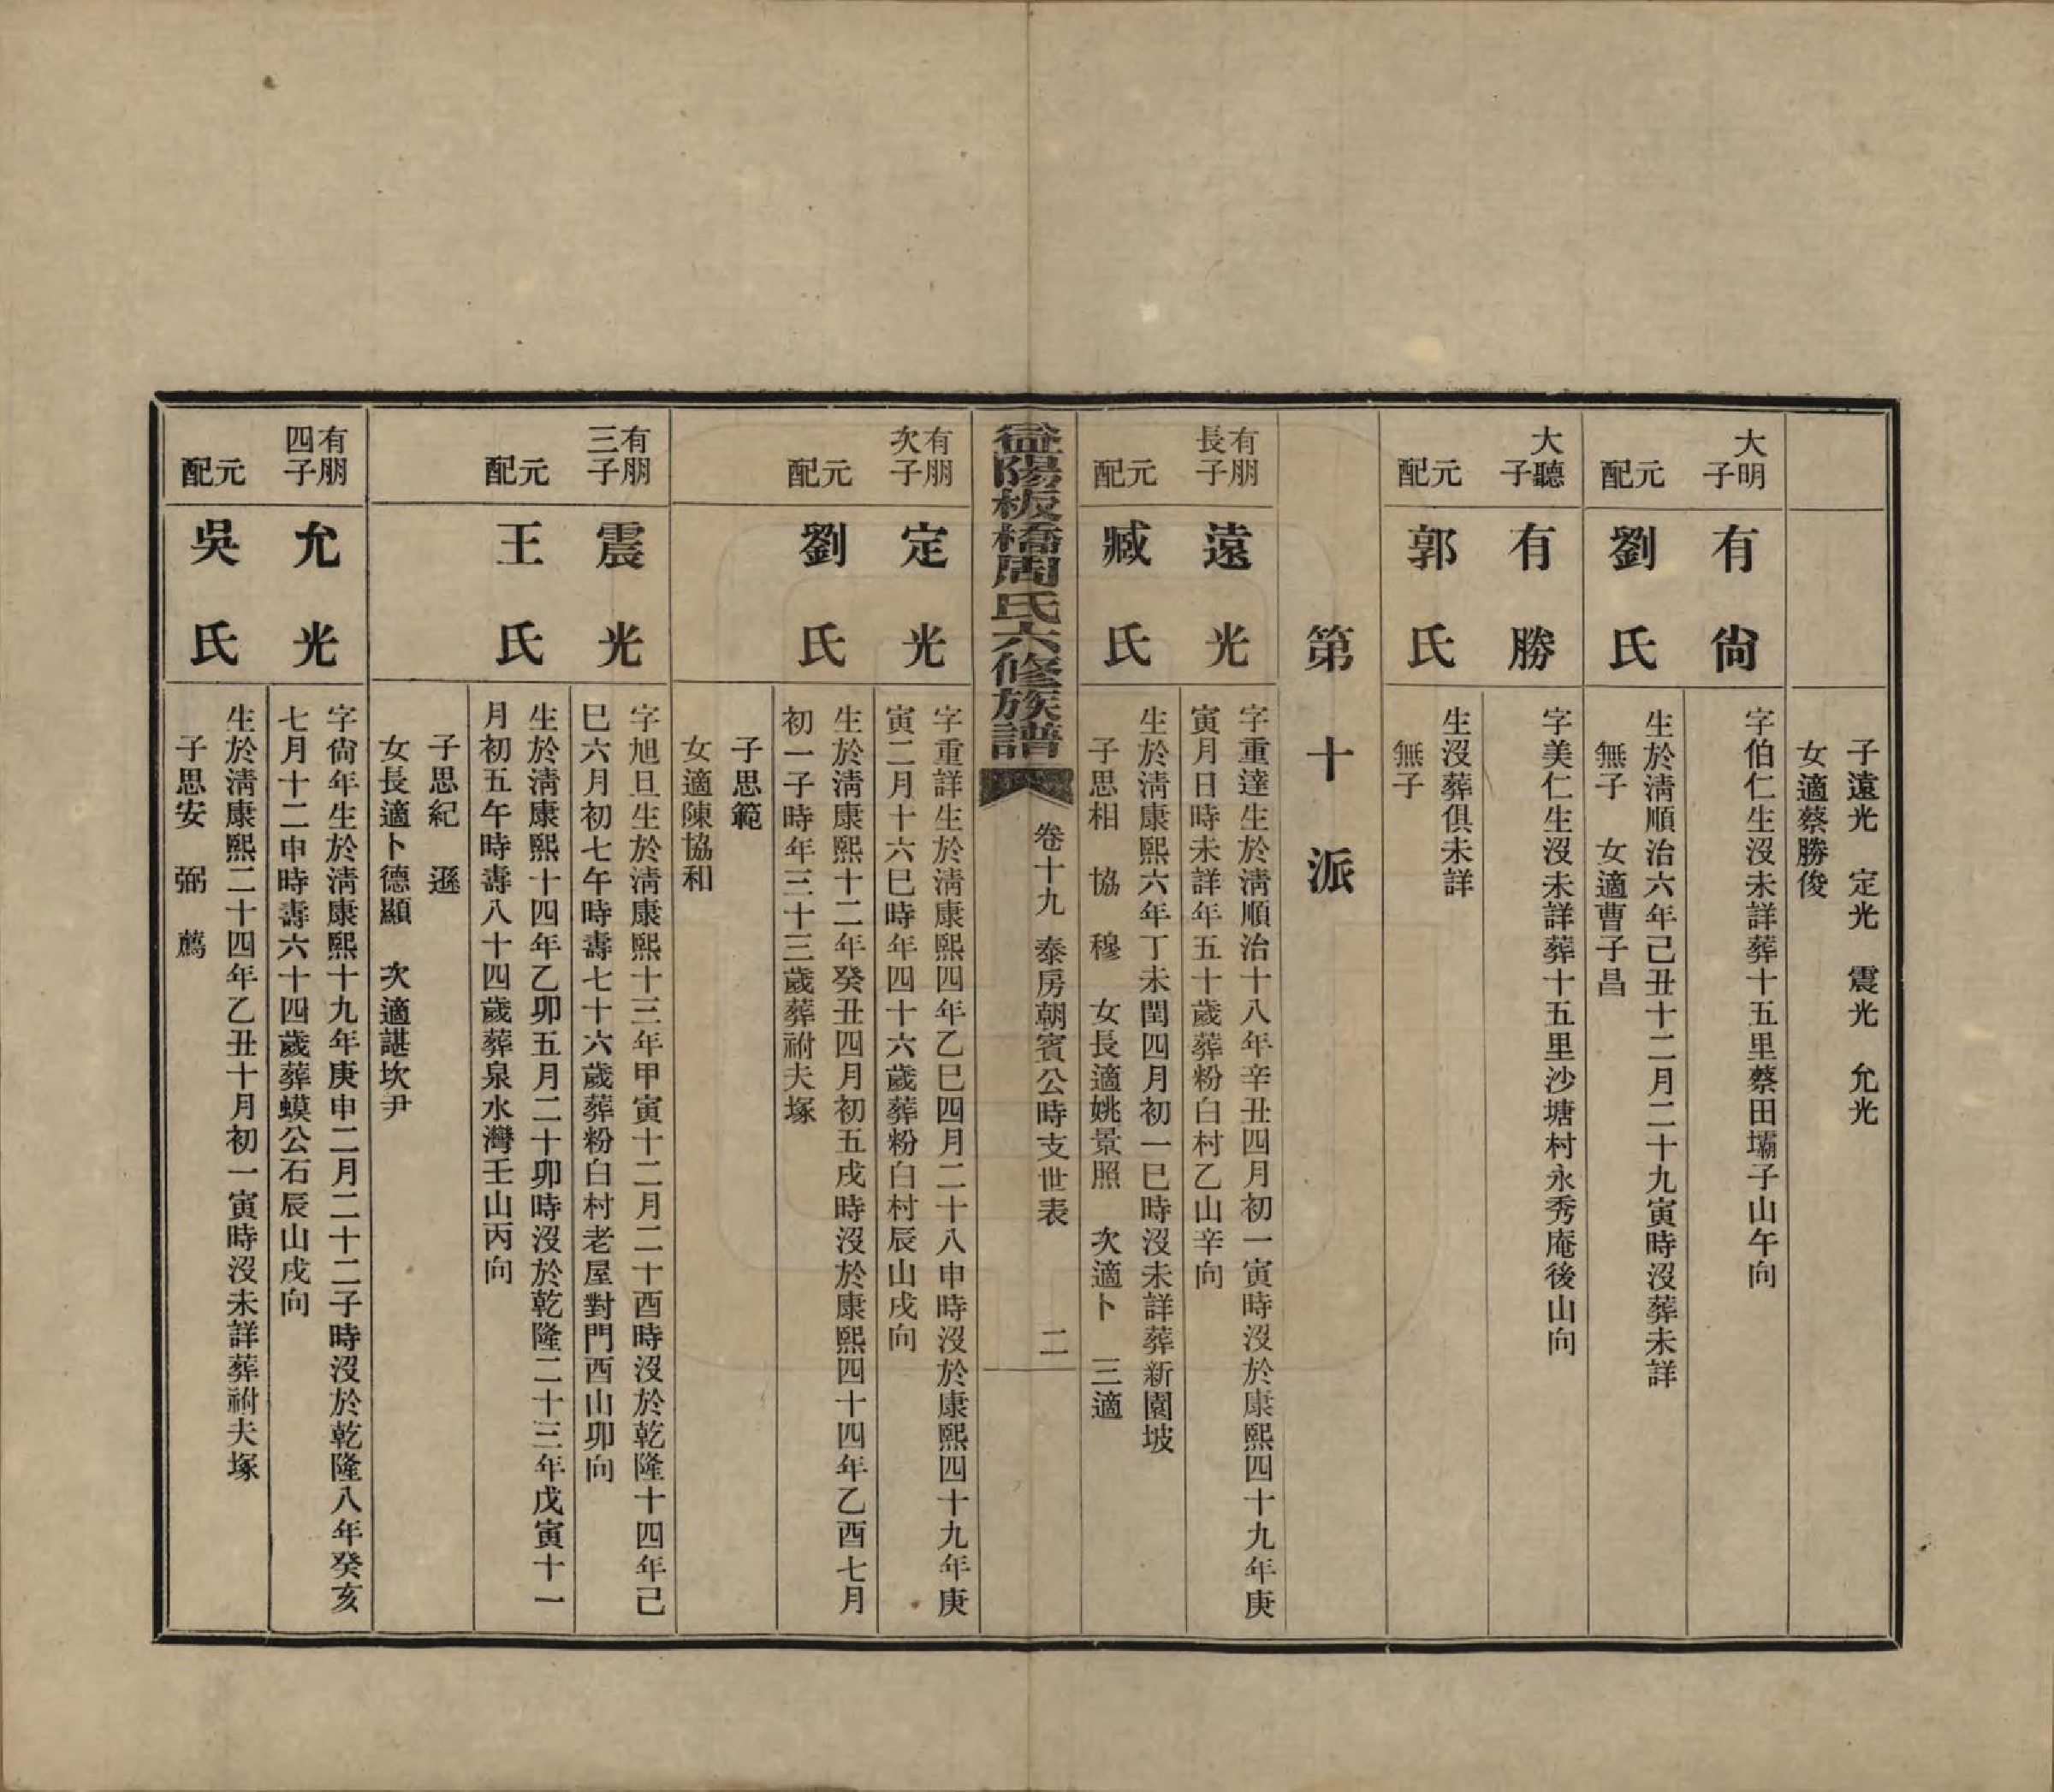 子遠光　定光　震光　允光
女適蔡勝俊
大明子
有尙
字伯仁生沒未詳葬十五里蔡田壩子山午向
元配
劉氏
生於淸順治六年己丑十二月二十九寅時沒葬未詳
無子　女適曹子昌
大聽子
有勝
字美仁生沒未詳葬十五里沙塘村永秀庵後山向
元配
郭氏
生沒葬俱未詳
無子
第十派
有朋長子
遠光
字重達生於淸順治十八年辛丑四月初一寅時沒於康熙四十九年庚
寅月日時未詳年五十歲葬粉白村乙山辛向
元配
臧氏
生於淸康熙六年丁未閏四月初一巳時沒未詳葬新園坡
子思相　協　穆　女長適姚景照　次適卜　三適
益陽板橋周氏六修族譜
卷十九　泰房朝賓公時支世表
二
有朋次子
定光
字重詳生於淸康熙四年乙巳四月二十八申時沒於康熙四十九年庚
寅二月十六巳時年四十六歲葬粉白村辰山戌向
元配
劉氏
生於淸康熙十二年癸丑四月初五戌時沒於康熙四十四年乙酉七月
初一子時年三十三歲葬祔夫塚
子思範
女適陳協和
有朋三子
震光
字旭旦生於淸康熙十三年甲寅十二月二十酉時沒於乾隆十四年己
巳六月初七午時壽七十六歲葬粉白村老屋對門酉山卯向
元配
王氏
生於淸康熙十四年乙卯五月二十卯時沒於乾隆二十三年戊寅十一
月初五午時壽八十四歲葬泉水灣壬山丙向
子思紀　遜
女長適卜德顯　次適諶坎尹
有朋四子
允光
字尙年生於淸康熙十九年庚申二月二十二子時沒於乾隆八年癸亥
七月十二申時壽六十四歲葬蟆公石辰山戌向
元配
吳氏
生於淸康熙二十四年乙丑十月初一寅時沒未詳葬祔夫塚
子思安　弼　薦